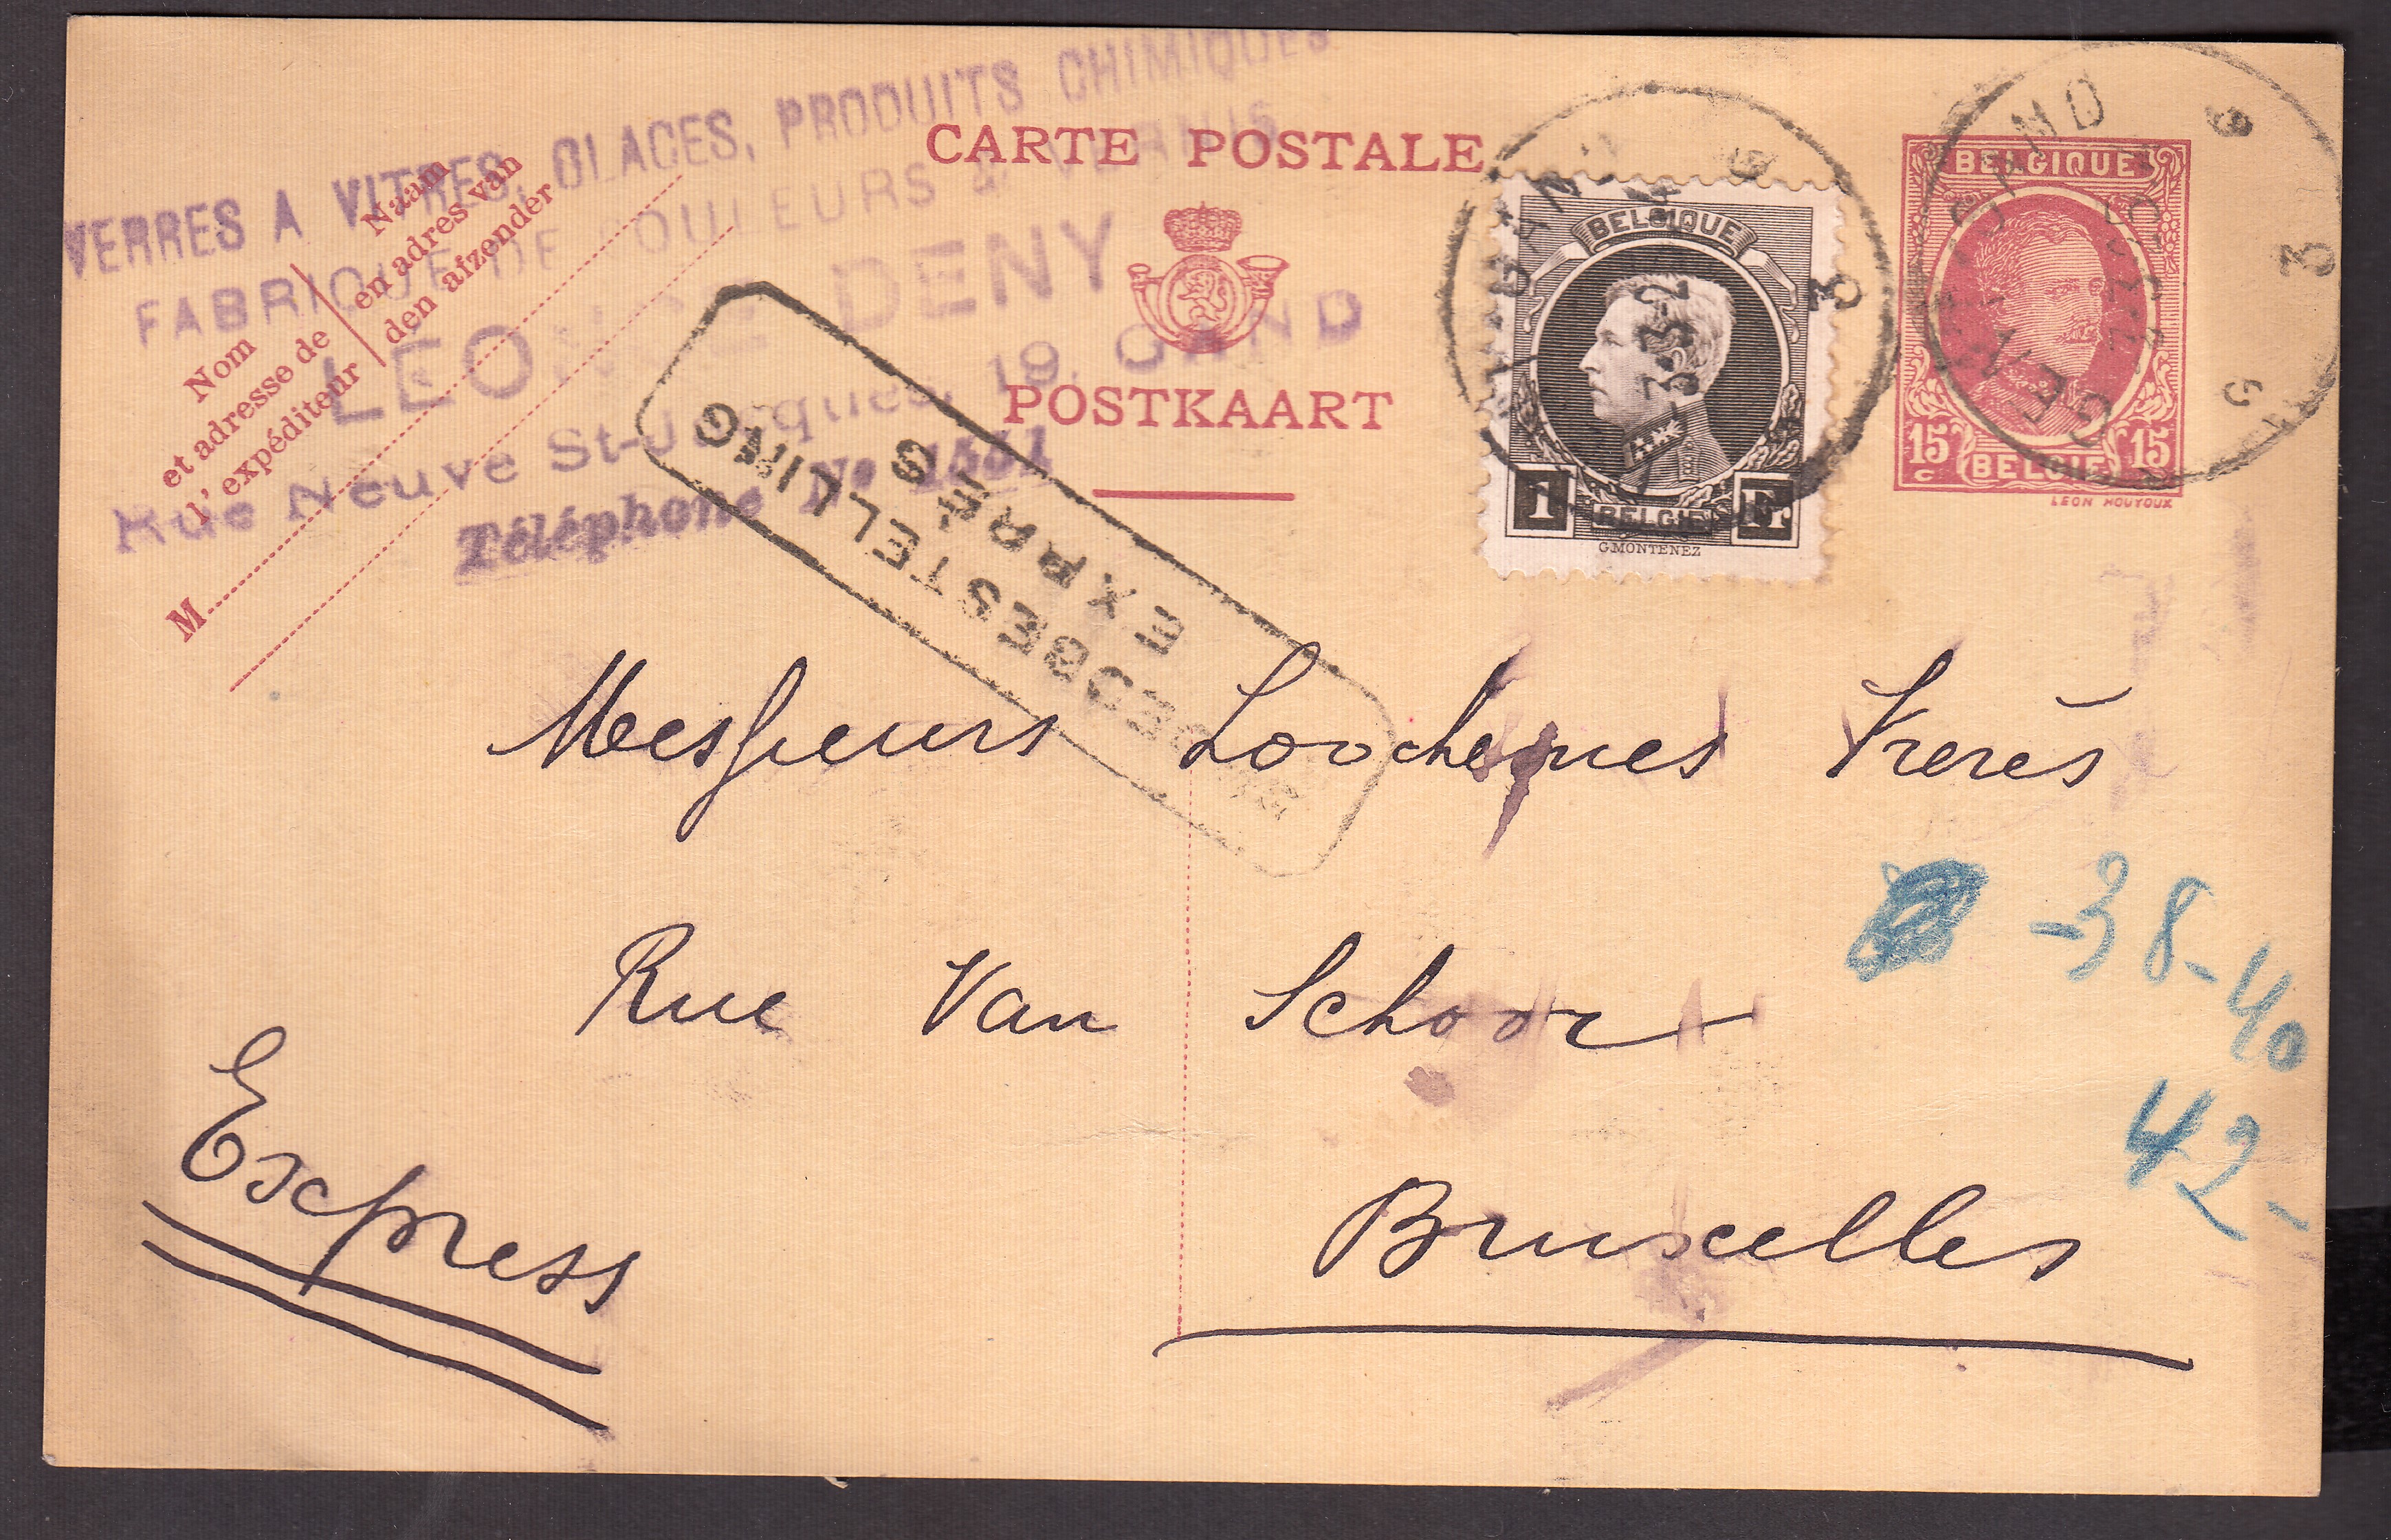 VERRES A VITRES, GLACES, PRODUITS CHIMIQUES
FABRIQUE DE COULEURS & VERNIS
DENY
Rue Neuve St-Jacques, 19, GAND
Téléphone No 1551
Nom
et adresse de
l'expéditeur
Naam
en adres van
den afzender
M
CARTE POSTALE
POSTKAART
SPOEDBESTELLING
EXPRÈS
BELGIQUE
1 Fr
BELGIE
G.MONTENEZ
BELGIQUE
15 c 15 c
BELGIE
LEON HOUYOUX
GAND
GENT
Messieurs Frères
Rue Van Schoor
-38-40
42-
Bruxelles
Express